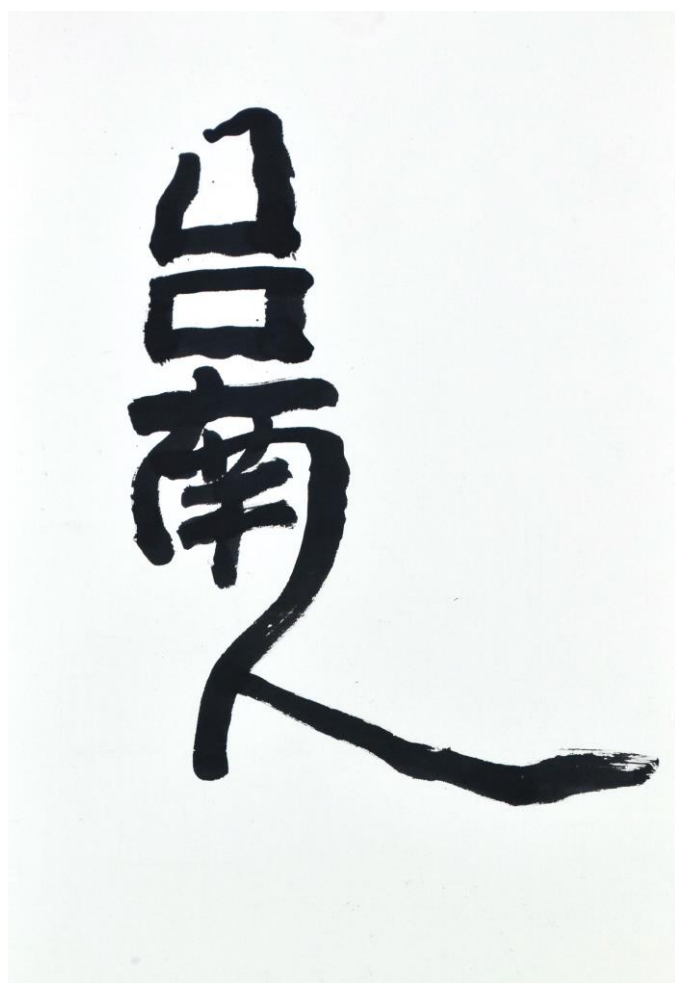 吕南人